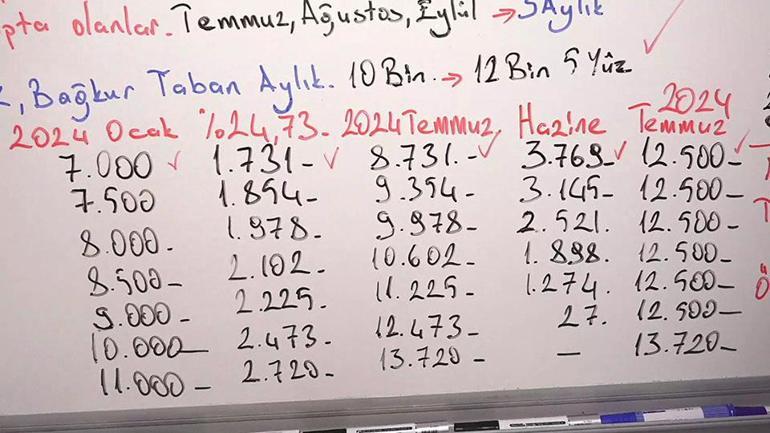 pta olanlar. Temmuz, Ağustos, Eylül → 3 Aylık
, Bağkur Taban Aylık. 10 Bin. → 12 Bin 5 Yüz
2024 Ocak %24,73- 2024 Temmuz. Hazine 2024 Temmuz
7.000 1.731- 8.731.- 3.769- 12.500-
7.500 1.854- 9.354- 3.145- 12.500-
8.000- 1.978- 9.978- 2.521. 12.500-
8.500- 2.102- 10.602- 1.898. 12.500-
9.000- 2.225- 11.225- 1.274. 12.500-
10.000- 2.473- 12.473- 27. 12.500-
11.000- 2.720- 13.720- - 13.720-